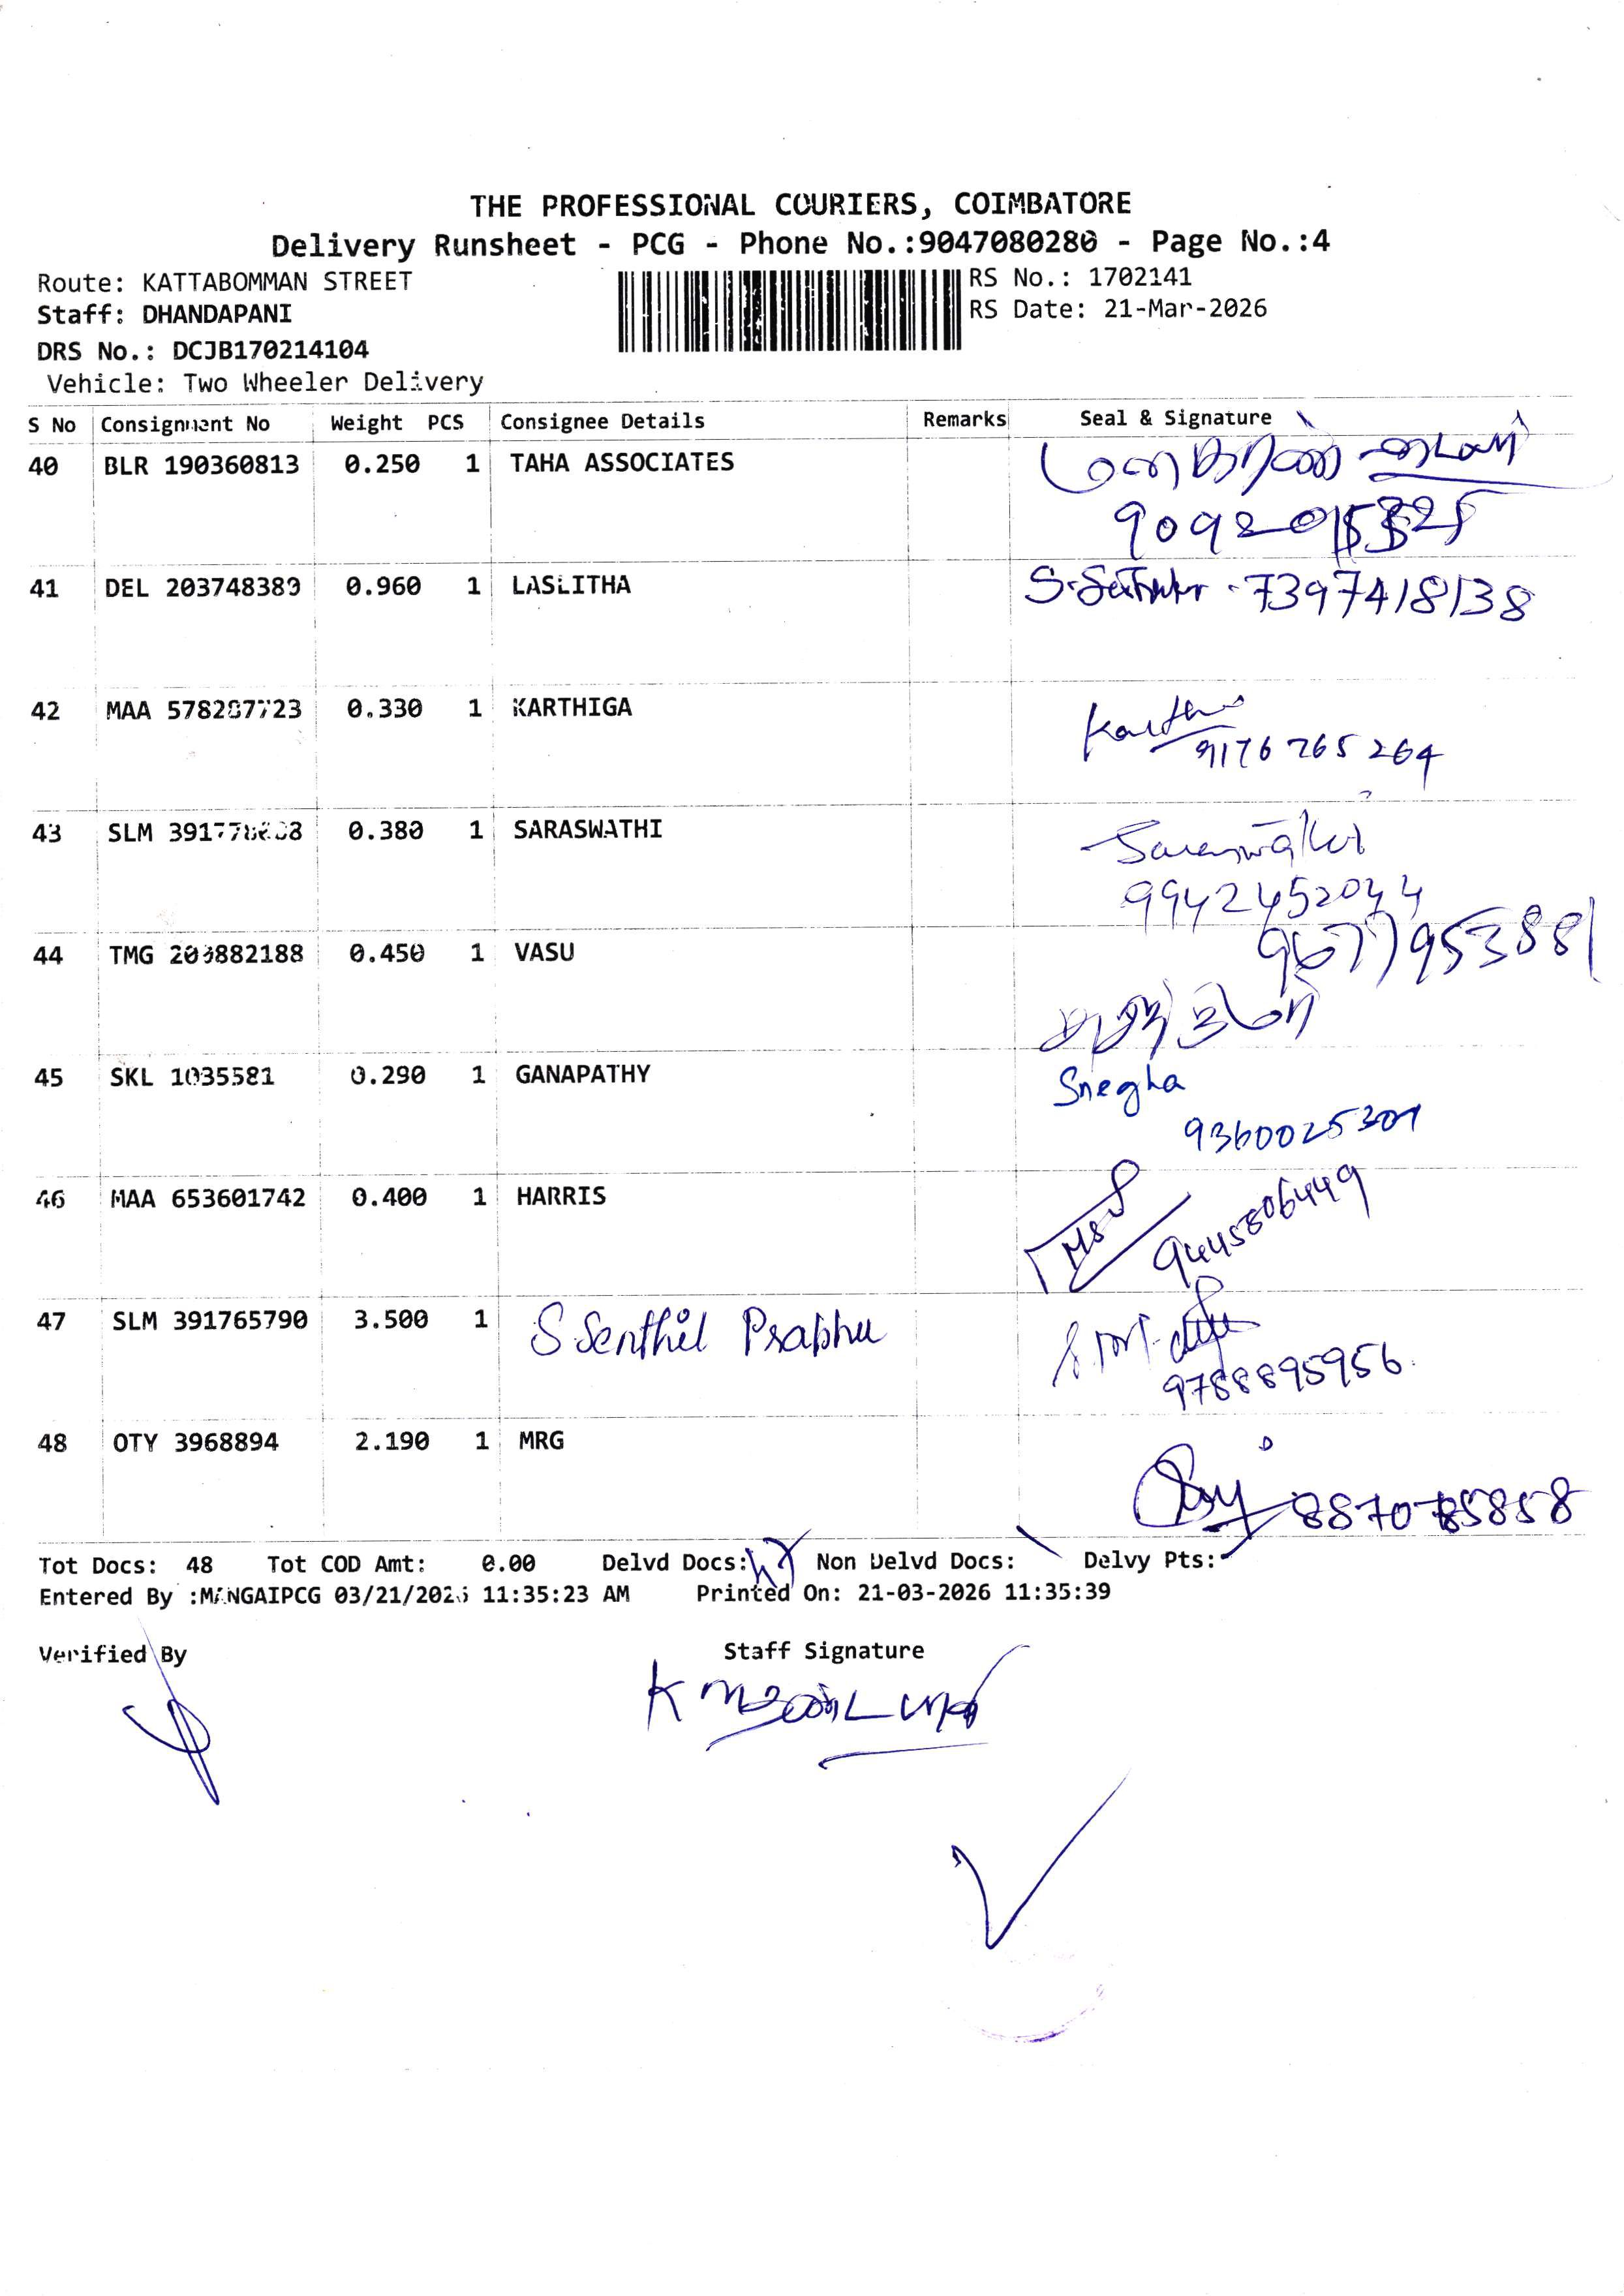 THE PROFESSIONAL COURIERS, COIMBATORE
Delivery Runsheet - PCG - Phone No.:9047080280 - Page No.:4
Route: KATTABOMMAN STREET
RS No.: 1702141
Staff: DHANDAPANI
RS Date: 21-Mar-2026
DRS No.: DCJB170214104
Vehicle: Two Wheeler Delivery
S No Consignment No Weight PCS Consignee Details Remarks Seal & Signature
40 BLR 190360813 0.250 1 TAHA ASSOCIATES
41 DEL 203748389 0.960 1 LASLITHA 7397418138
42 MAA 0.330 1 KARTHIGA
9176765264
43 SLM 0.380 1 SARASWATHI Saraswathi
9942452044
44 TMG 0.450 1 VASU 9677953881
45 SKL 1035581 0.290 1 GANAPATHY Snegha
46 MAA 653601742 0.400 1 HARRIS
9445806449
47 SLM 391765790 3.500 1 S Senthil Prabhu
9788895956
48 OTY 3968894 2.190 1 MRG
Tot Docs: 48 Tot COD Amt: 0.00 Delvd Docs: Non Delvd Docs: Delvy Pts:
Entered By :MANGAIPCG 03/21/2026 11:35:23 AM Printed On: 21-03-2026 11:35:39
Verified By Staff Signature